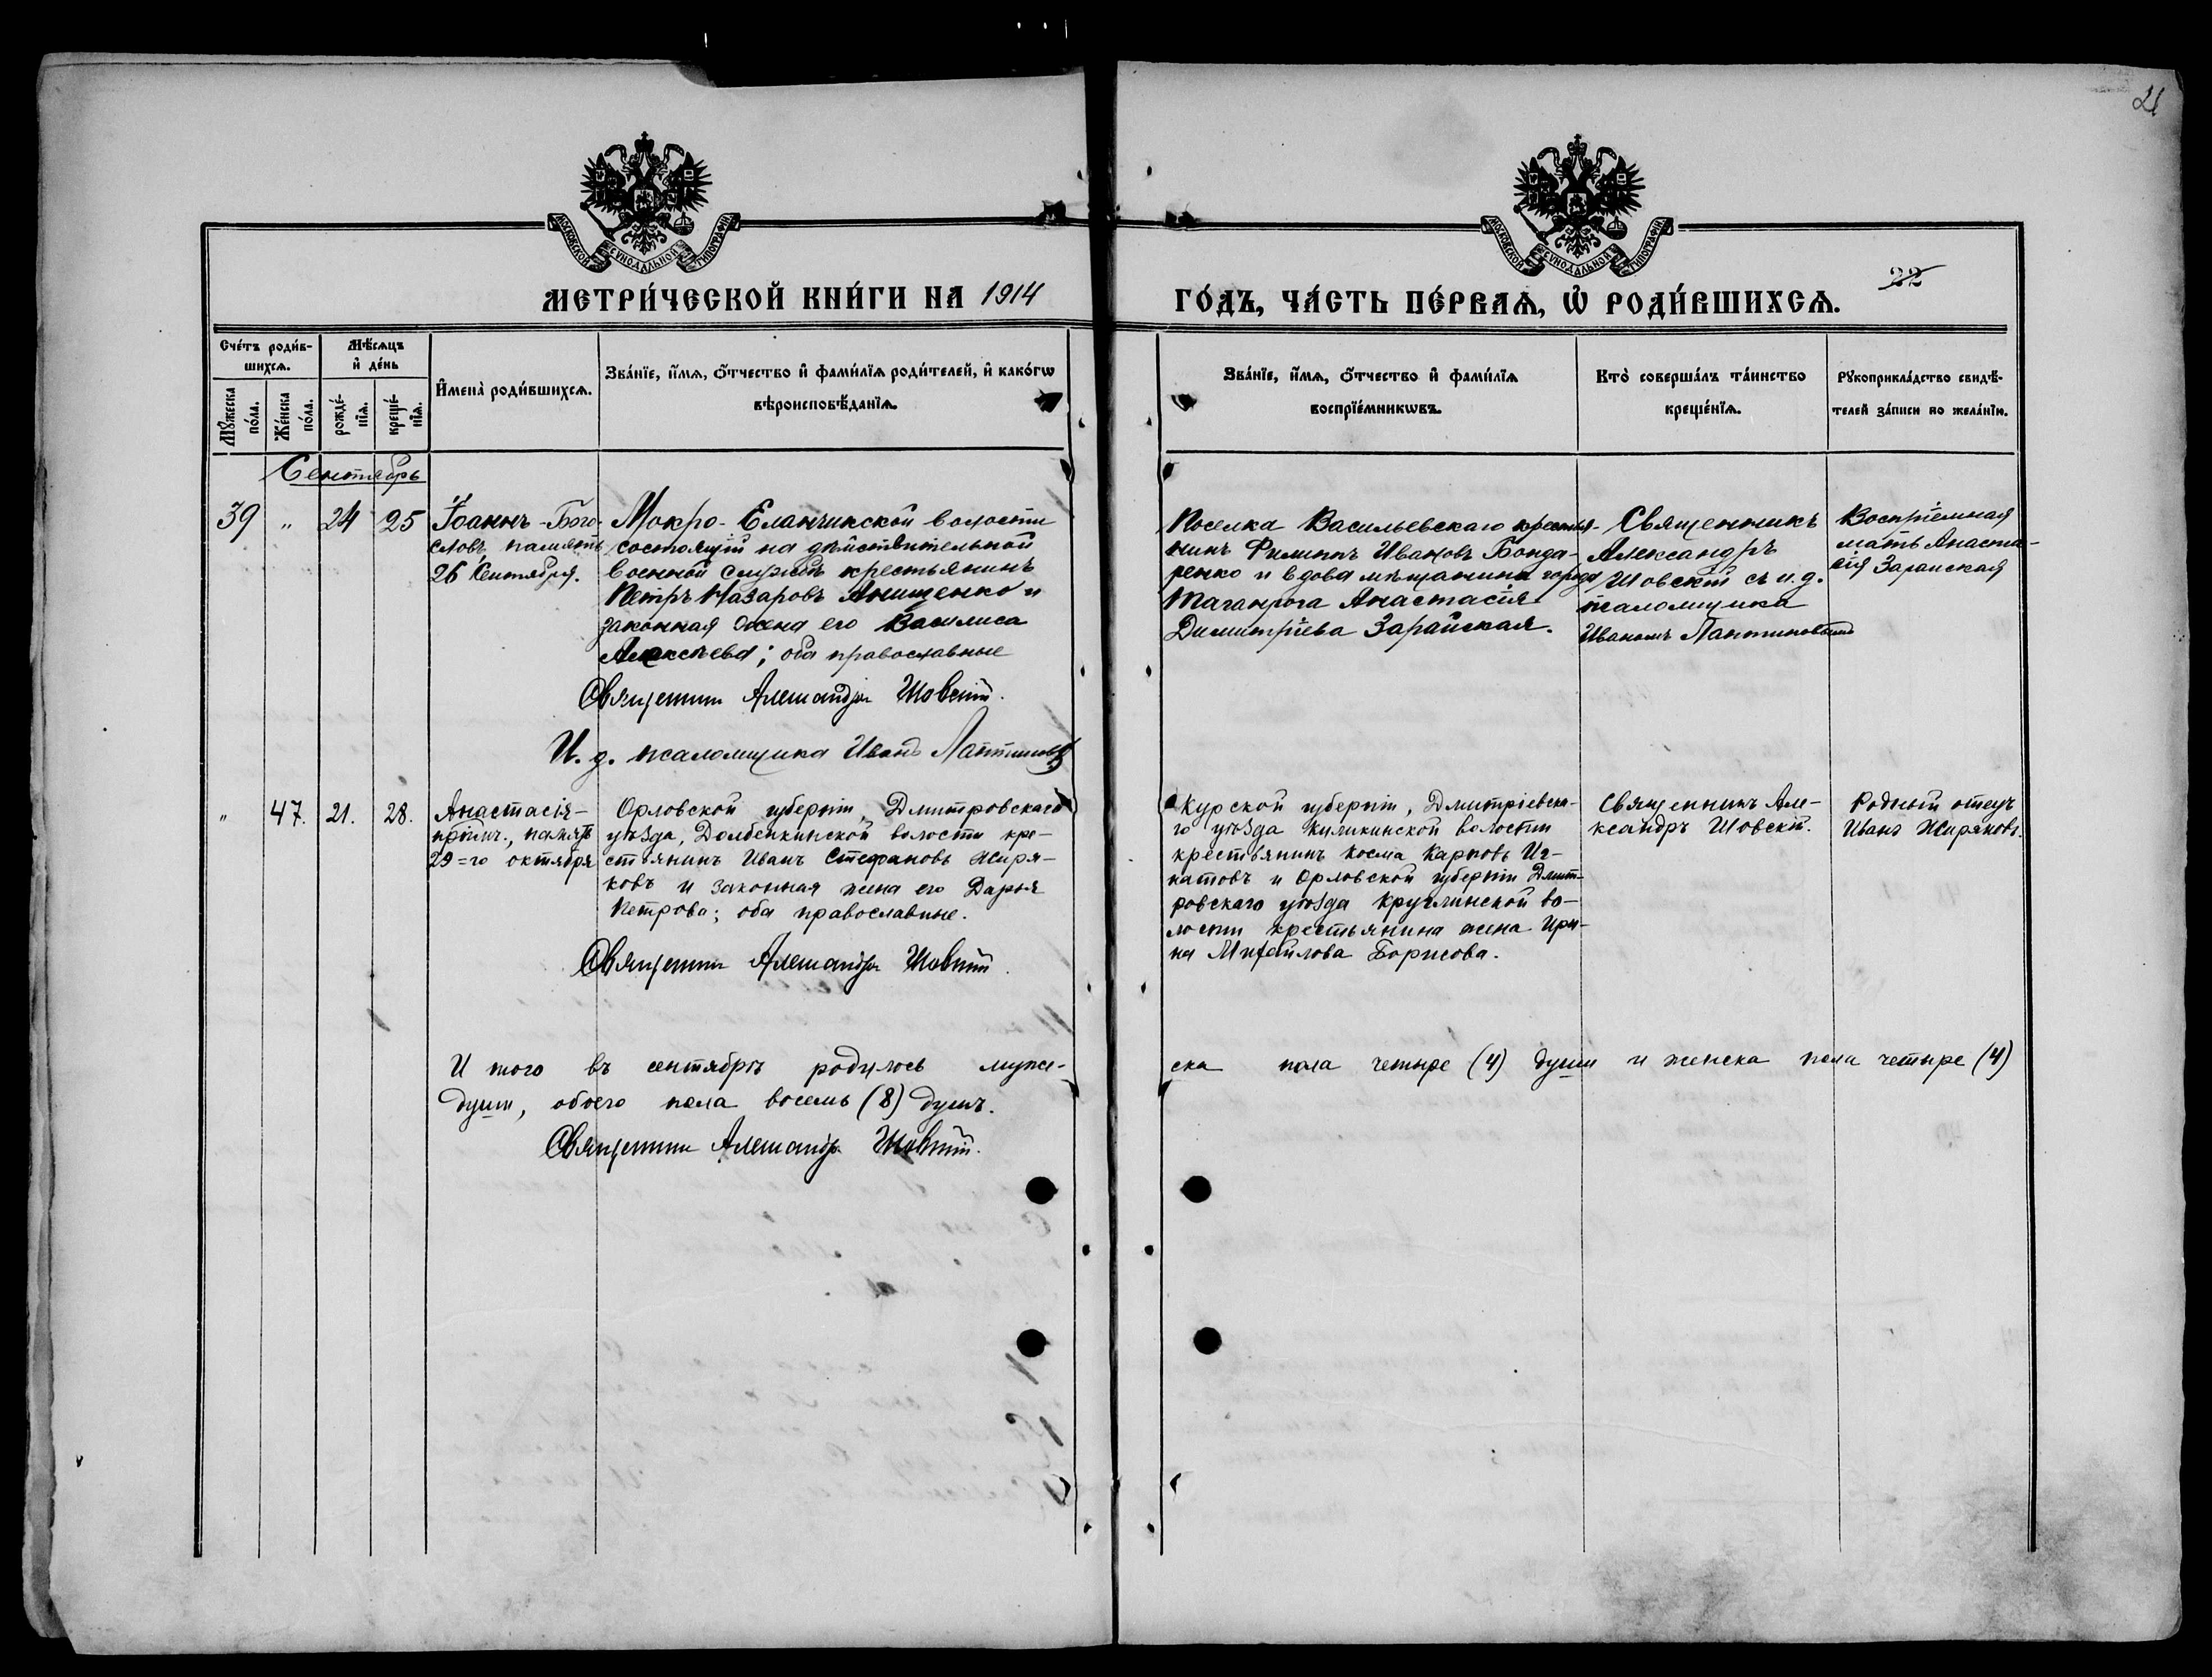 21
МОСКОВСКОЙ СУНОДАЛЬНОЙ ТИПОГРАФІИ
МОСКОВСКОЙ СУНОДАЛЬНОЙ ТИПОГРАФІИ
22
МЕТРИ́ЧЕСКОЙ КНИ́ГИ НА 1914
ГО́ДЪ, ЧА́СТЬ ПЕ́РВАѦ, Ѡ҆ РОДИ́ВШИХСѦ.
Сче́тъ роди́в-
шихсѧ.
Мѣ́сѧцъ
и҆ де́нь
Мꙋ́жеска
по́ла.
Же́нска
по́ла.
рожде́-
нїѧ.
креще́-
нїѧ.
И҆мена̀ роди́вшихсѧ.
Зва́нїе, и҆́мѧ, ѻ҆́тчество и҆ фами́лїѧ роди́телей, и҆ како́гѡ
вѣроисповѣ́данїѧ.
Зва́нїе, и҆́мѧ, ѻ҆́тчество и҆ фами́лїѧ
воспрїе́мникѡвъ.
Кто̀ соверша́лъ та́инство
креще́нїѧ.
Рꙋкоприкла́дство свидѣ́-
телей за́писи по жела́нїю.
Сентябрь
39 " 24 25
Іоаннъ-Бого-
словъ память
26 Сентября.
Мокро-Еланчикской волости
состоящій на дѣйствительной
военной службѣ крестьянинъ
Петръ Назаровъ Анищенко и
законная жена его Василиса
Алексѣева; оба православные
Священникъ Александръ Шовскій.
И. д. псаломщика Иванъ Лаптиновъ
Поселка Васильевскаго крестья-
нинъ Филиппъ Ивановъ Бонда-
ренко и вдова мѣщанина города
Таганрога Анастасія
Димитріева Зарайская.
Священникъ
Александръ
Шовскій съ и. д.
псаломщика
Иваномъ Лаптиновымъ
Воспріемная
мать Анаста-
сія Зарайская
" 47. 21. 28.
Анастасія-
препмч., память
29=го октября
Орловской губерніи, Дмитровскаго
уѣзда, Долбенкинской волости кре-
стьянинъ Иванъ Стефановъ Жиря-
ковъ и законная жена его Дарья
Петрова; оба православные.
Священникъ Александръ Шовскій.
Курской губерніи, Дмитріевска-
го уѣзда Куликинской волости
крестьянинъ Косма Карповъ Иг-
натовъ и Орловской губерніи Дмит-
ровскаго уѣзда Круглинской во-
лости крестьянина жена Ири-
на Михайлова Борисова.
Священникъ Але-
ксандръ Шовскій.
Родный отецъ
Иванъ Жиряковъ.
И того въ сентябрѣ родилось муже-
ска пола четыре (4) души и женска пола четыре (4)
души, обоего пола восемь (8) душъ.
Священникъ Александръ Шовскій.